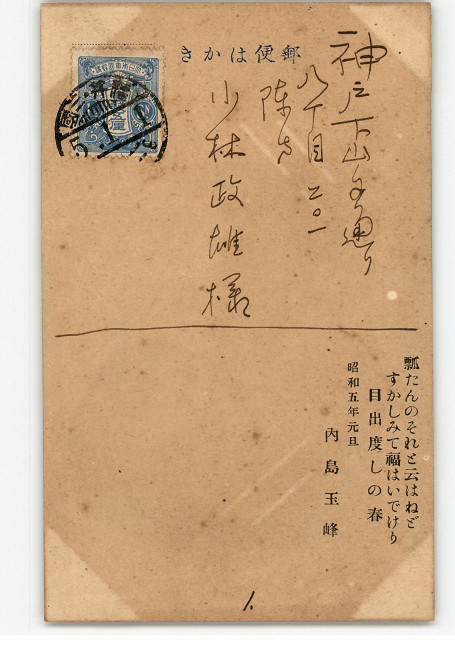 郵便はかき
神戸下山手通り
八丁目二〇一
陳方
小林政雄様
瓢たんのそれと云はねど
すかしみて福はいでけり
目出度しの春
昭和五年元旦
内島玉峰
1.